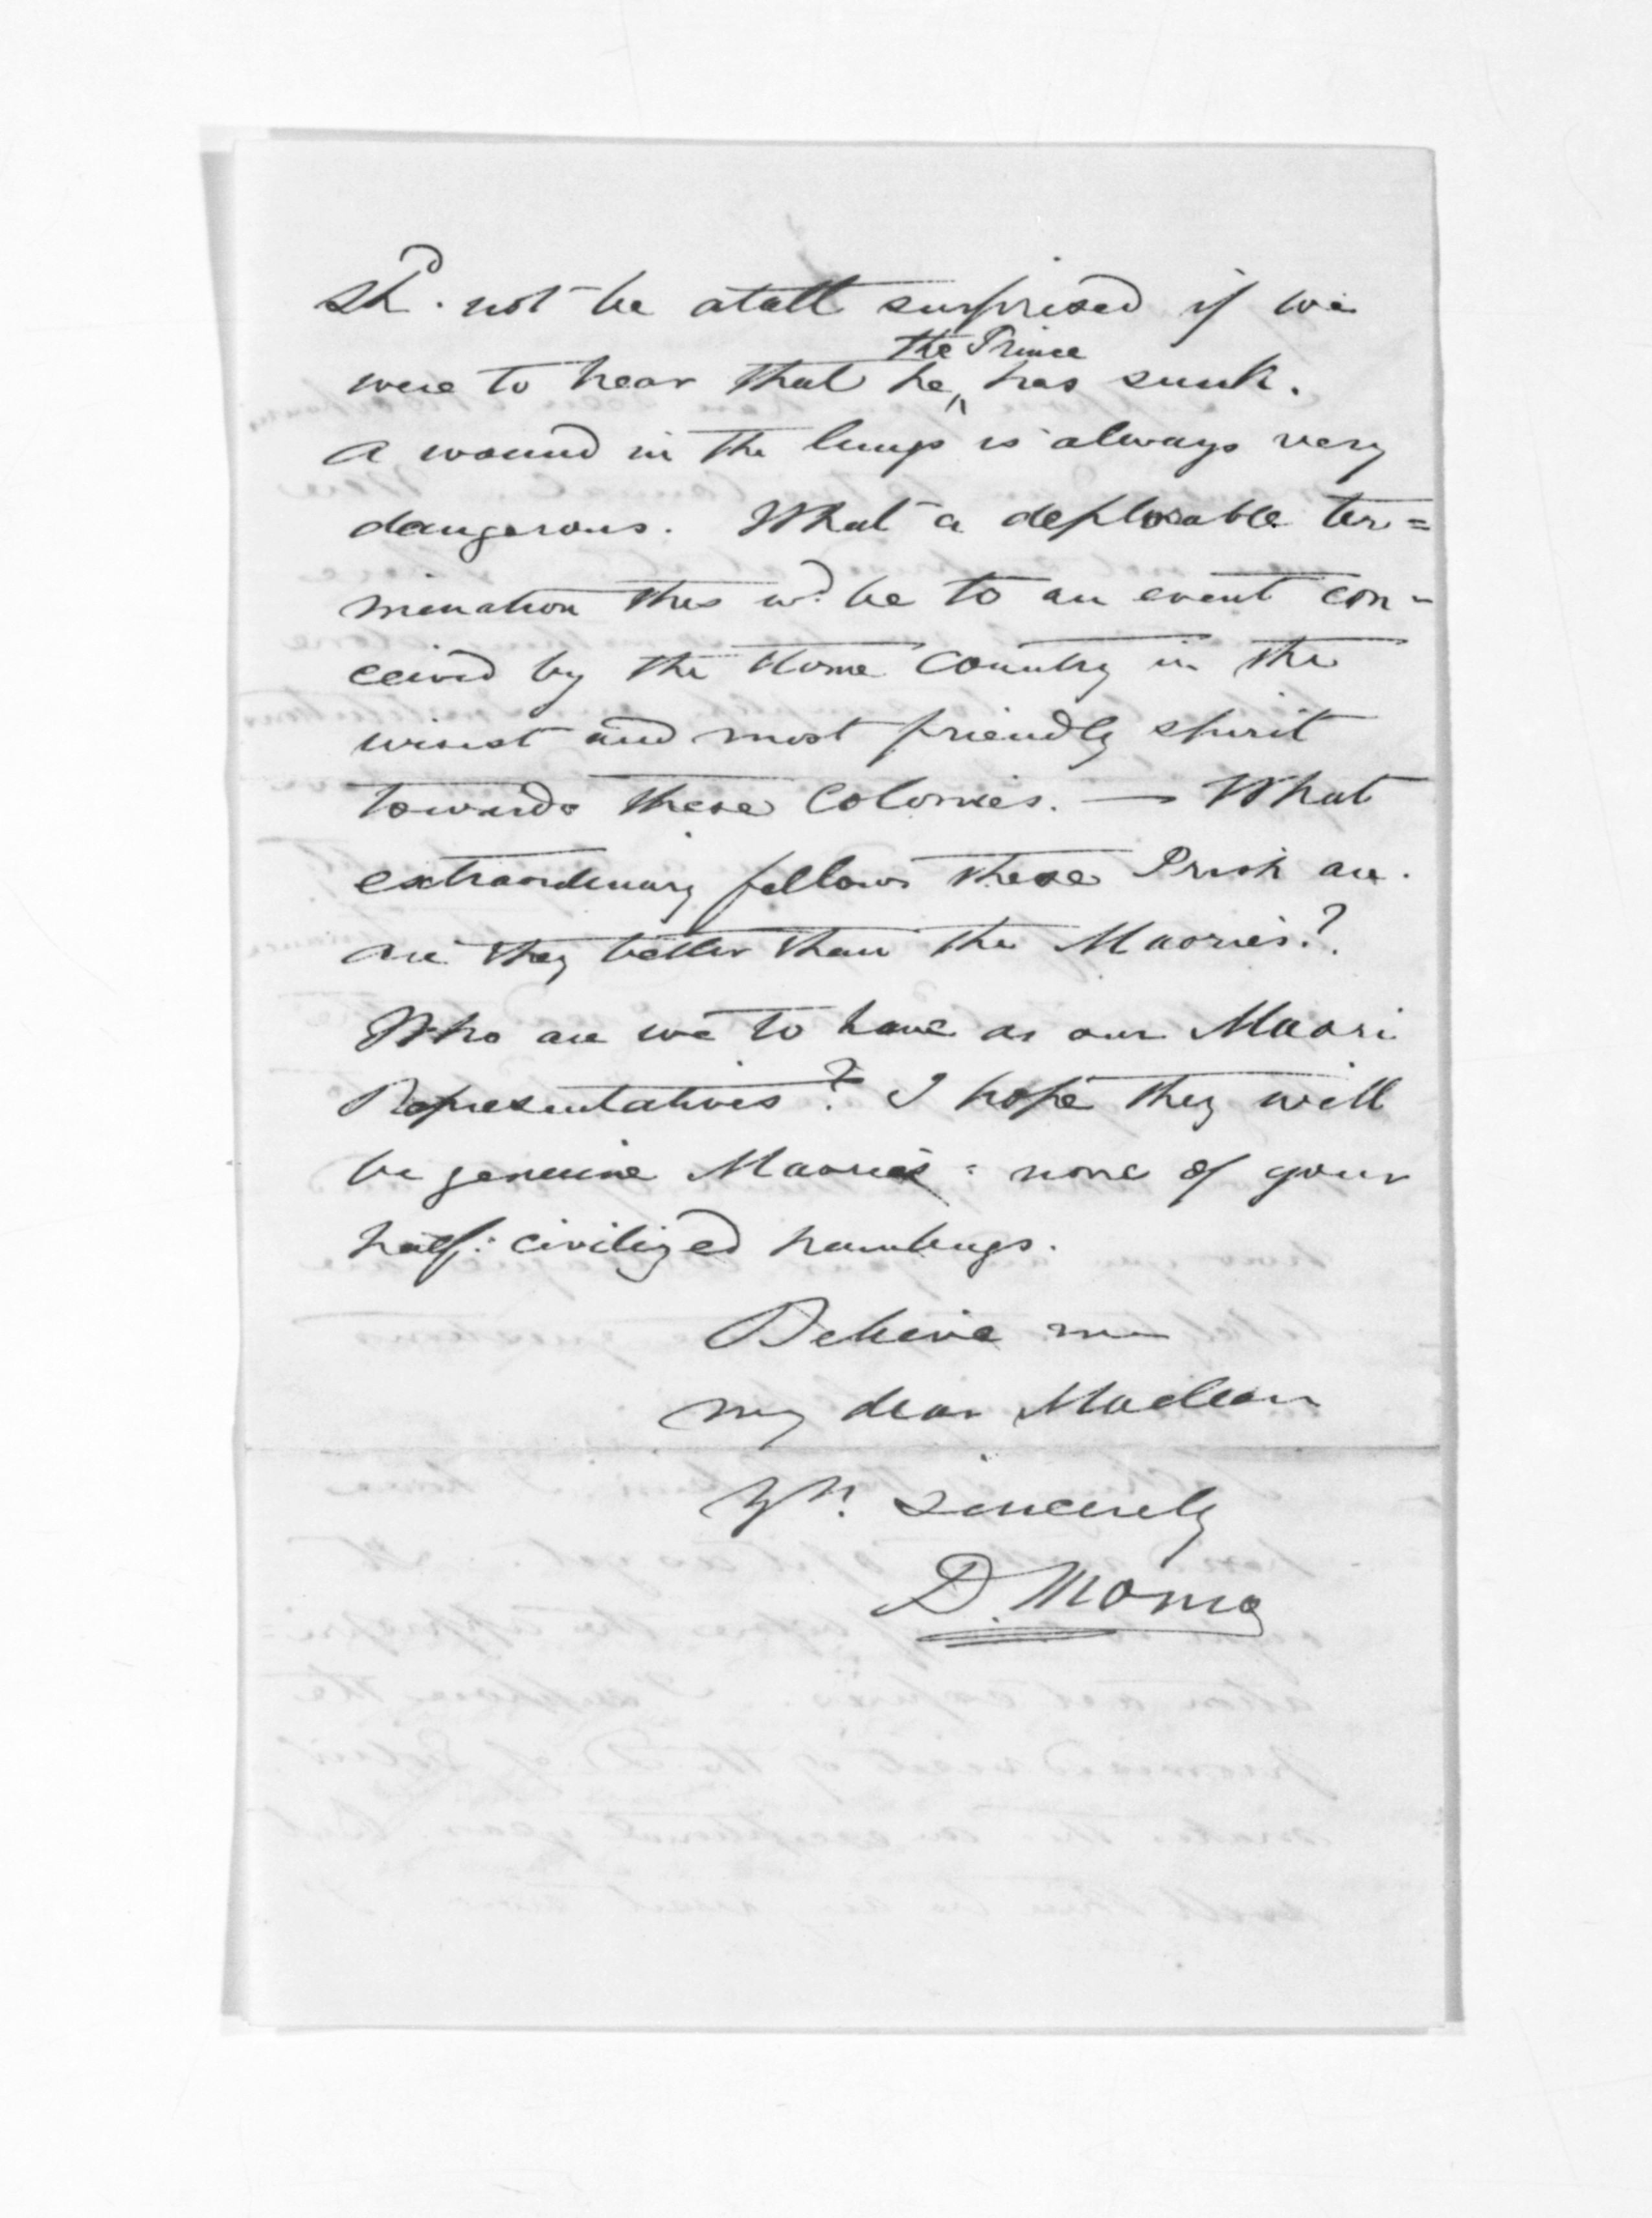 shd. not be atall surprised if we
the Prince
were to hear that he, has sunk.
A wound in the lungs is always very
dangerous. What a deplorable ter=
mination this wd. be to an event con-
ceived by the Home Country in the
wisest and most friendly spirit
towards these Colonies. — What
extraordinary fellows these Irish are.
Are they better than the Maories?
Who are we to have as our Maori
Representatives? I hope they will
be genuine Maories: none of your
half: civilized humbugs.
Believe me
my dear Maclean
Yrs. sincerely
D. Monro